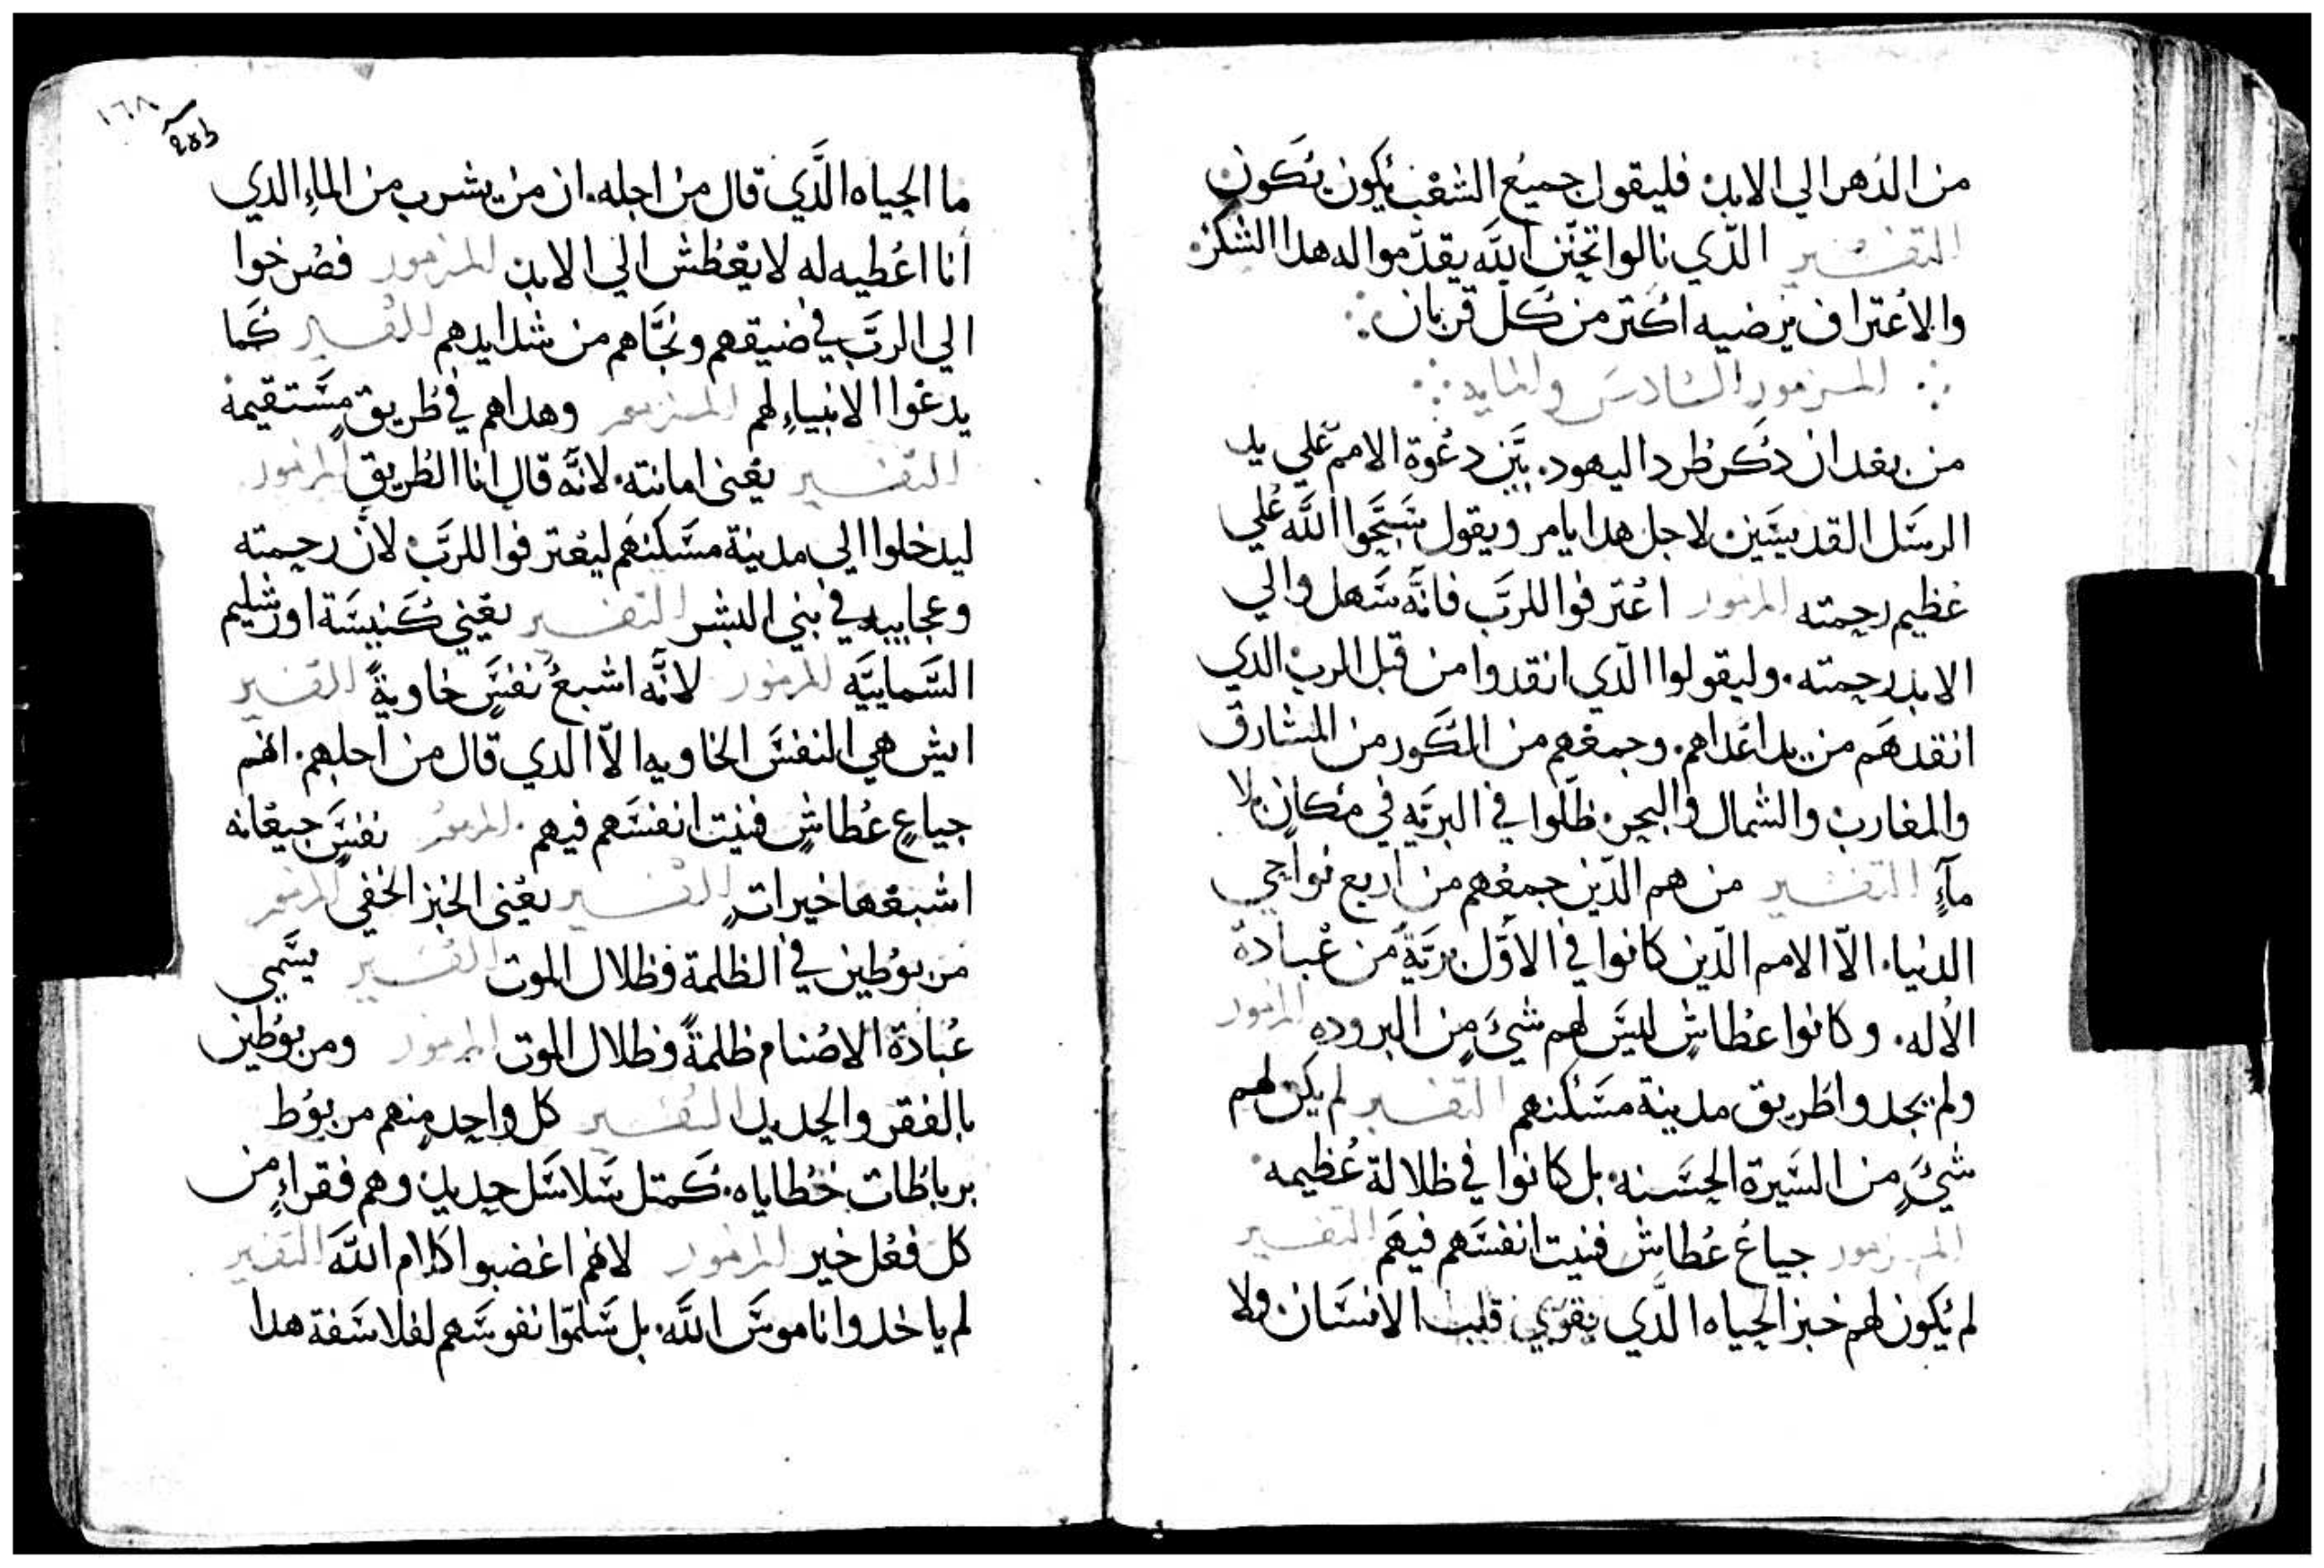 من الدهر الي الابد فليقول جميع الشعب يكون يكون
التفسير الذي نالوا تحنن الله يقدموا له هدا الشكر
والاعتراف يرضيه اكتر من كل قربان
المزمور السادس والمايه
من بعد ان دكر طرد اليهود. بين دعوة الامم علي يد
الرسل القديسين لاجل هدا يامر ويقول سبحوا الله علي
عظيم رحمته المزمور اعترفوا للرب فانه سهل والي
الابد رحمته. وليقولوا الدي انقدوا من قبل الرب الدي
انقدهم من يد اعداهم. وجمعهم من الكور من المشارق
والمغارب والشمال والبحر. ظلوا في البريه في مكان بلا
مآءٍ التفسير من هم الدين جمعهم من اربع نواحي
الدنيا. الا الامم الدين كانوا في الاول برية من عبادة
الاله. وكانوا عطاش ليس لهم شي من البروده المزمور
ولم يجدوا طريق مدينة مسكنهم التفسير لم يكن لهم
شي من السيرة الحسنه. بل كانوا في ظلالة عظيمه
المزمور جياع عطاش فنيت انفسهم فيهم التفسير
لم يكون لهم خبز الحياه الدي يقوي قلب الانسان ولا
١٦٨
ما الحياه الدي قال من اجله. ان من يشرب من الماء الدي
انا اعطيه له لا يعطش الي الابد المزمور فصرخوا
الي الرب في ضيقهم ونجاهم من شدايدهم التفسير كما
يدعوا الانبياء لهم المزمور وهداهم في طريق مستقيمة
التفسير يعنى امانته. لانه قال انا الطريق المزمور
ليدخلوا الى مدينة مسكنهم ليعترفوا للرب لان رحمته
وعجايبه في بني البشر التفسير يعني كنيسة اورشليم
السمايية المزمور لانه اشبع نفس خاوية التفسير
ايش هي النفس الخاويه الا الدي قال من اجلهم. انهم
جياع عطاش فنيت انفسهم فيهم. المزمور نفس جيعانه
اشبعها خيرات التفسير يعنى الخبز الخفي المزمور
مربوطين في الظلمة وظلال الموت التفسير يسمي
عبادة الاصنام ظلمة وظلال الموت المزمور ومربوطين
بالفقر والحديد التفسير كل واحد منهم مربوط
برباطات خطاياه. كمتل سلاسل حديد وهم فقراء من
كل فعل خير المزمور لانهم اغضبوا كلام الله التفسير
لم ياخدوا ناموس الله. بل سلموا نفوسهم لفلاسفة هدا